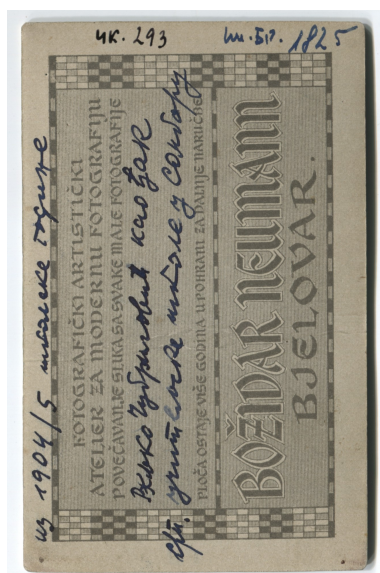 чк. 293
ин. бр. 1825
из 1904/5 школске године
FOTOGRAFIČKI ARTISTIČKI
ATELIER ZA MODERNU FOTOGRAFIJU
POVEČAVANJE SLIKA SA SVAKE MALE FOTOGRAFIJE
Вељко Чубриловић као ђак
срп. учитељске школе у Сомбору
PLOČA OSTAJE VIŠE GODINA U POHRANI ZA DALJNJE NARUČBE
BOŽIDAR NEUMANN
BJELOVAR.